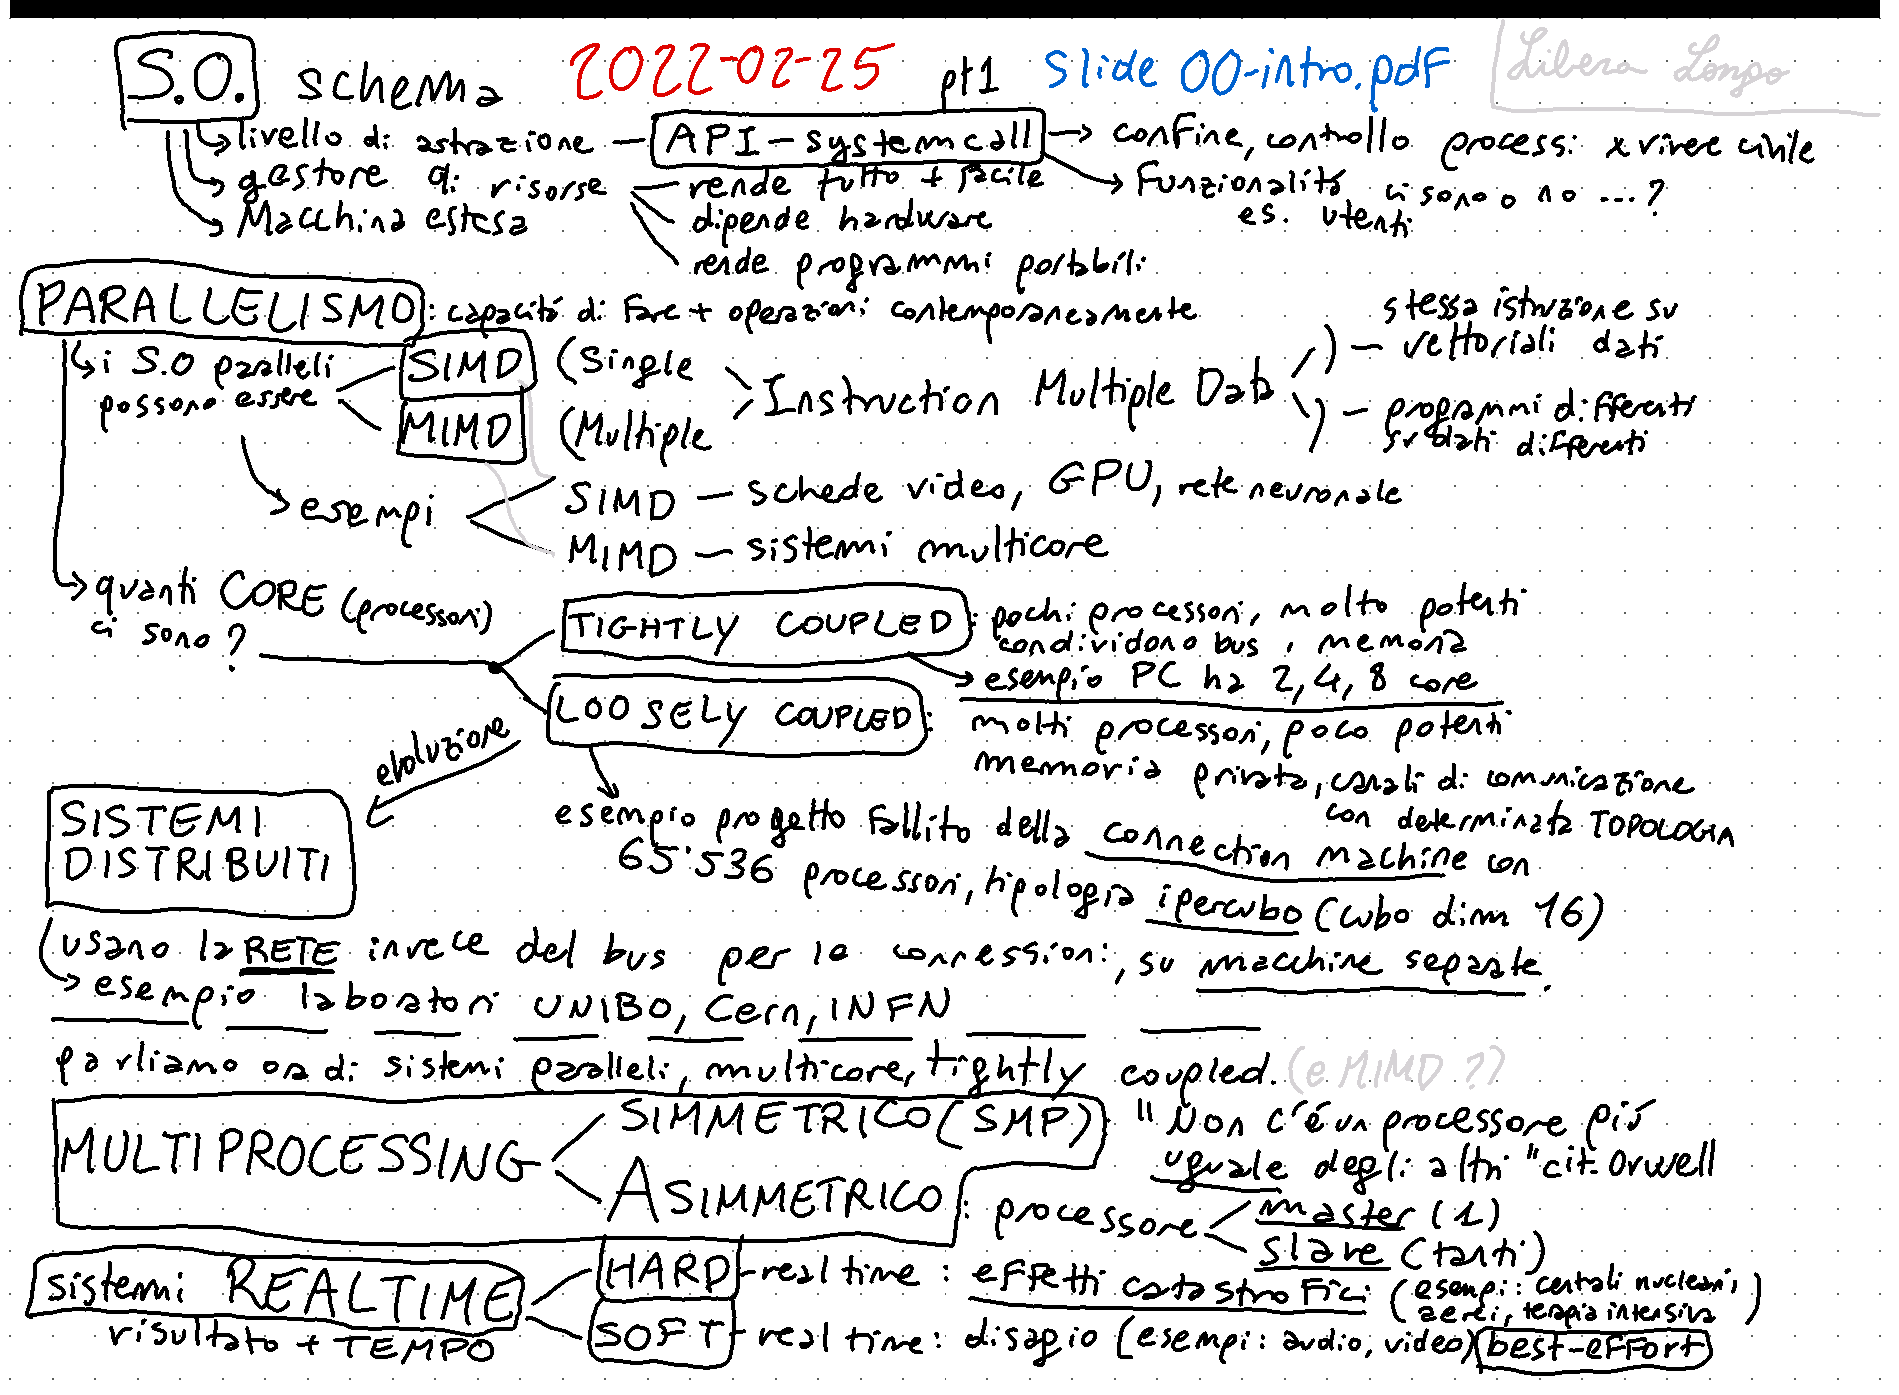 S.O. schema 2022-02-25 pt1 slide 00-intro.pdf Libera Longo
livello di astrazione — API - systemcall → confine, controllo processi x vivere civile
gestore di risorse — rende tutto + facile → Funzionalità ci sono o no ...?
Macchina estesa dipende hardware es. utenti
rende programmi portabili
PARALLELISMO: capacità di fare + operazioni contemporaneamente
i S.O paralleli possono essere
SIMD (Single
MIMD (Multiple
Instruction Multiple Data
) — stessa istruzione su
vettoriali dati
) — programmi differenti
su dati differenti
esempi
SIMD — schede video, GPU, rete neuronale
MIMD — sistemi multicore
quanti CORE (processori)
ci sono?
TIGHTLY COUPLED: pochi processori, molto potenti
condividono bus, memoria
esempio PC ha 2, 4, 8 core
LOOSELY COUPLED: molti processori, poco potenti
memoria privata, canali di comunicazione
con determinata TOPOLOGIA
evoluzione
esempio progetto fallito della connection machine con
65'536 processori, tipologia ipercubo (cubo dim 16)
SISTEMI
DISTRIBUITI
usano la RETE invece del bus per le connessioni, su macchine separate.
esempio laboratori UNIBO, Cern, INFN
parliamo ora di sistemi paralleli, multicore, tightly coupled. (e MIMD ??)
MULTIPROCESSING
SIMMETRICO (SMP): "Non c'é un processore più
uguale degli altri" cit. Orwell
ASIMMETRICO: processore
master (1)
slave (tanti)
sistemi REALTIME
risultato + TEMPO
HARD - real time: effetti catastrofici (esempi: centrali nucleari,
aerei, terapia intensiva)
SOFT - real time: disagio (esempi: audio, video) best-effort